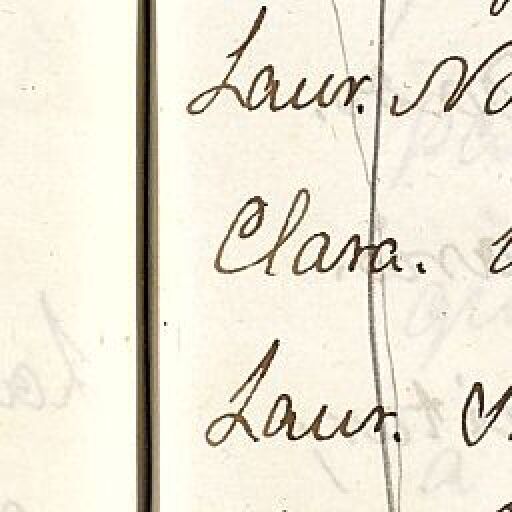 Laur. No
Clara.
Laur.